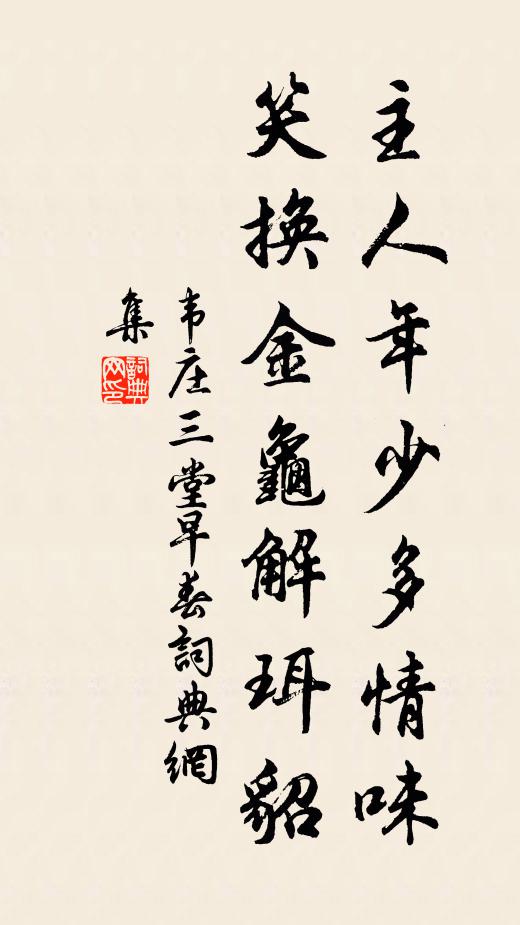 主人年少多情味
笑換金龜解珥貂
韦庄三堂早春詞典網
集
詞典
网印